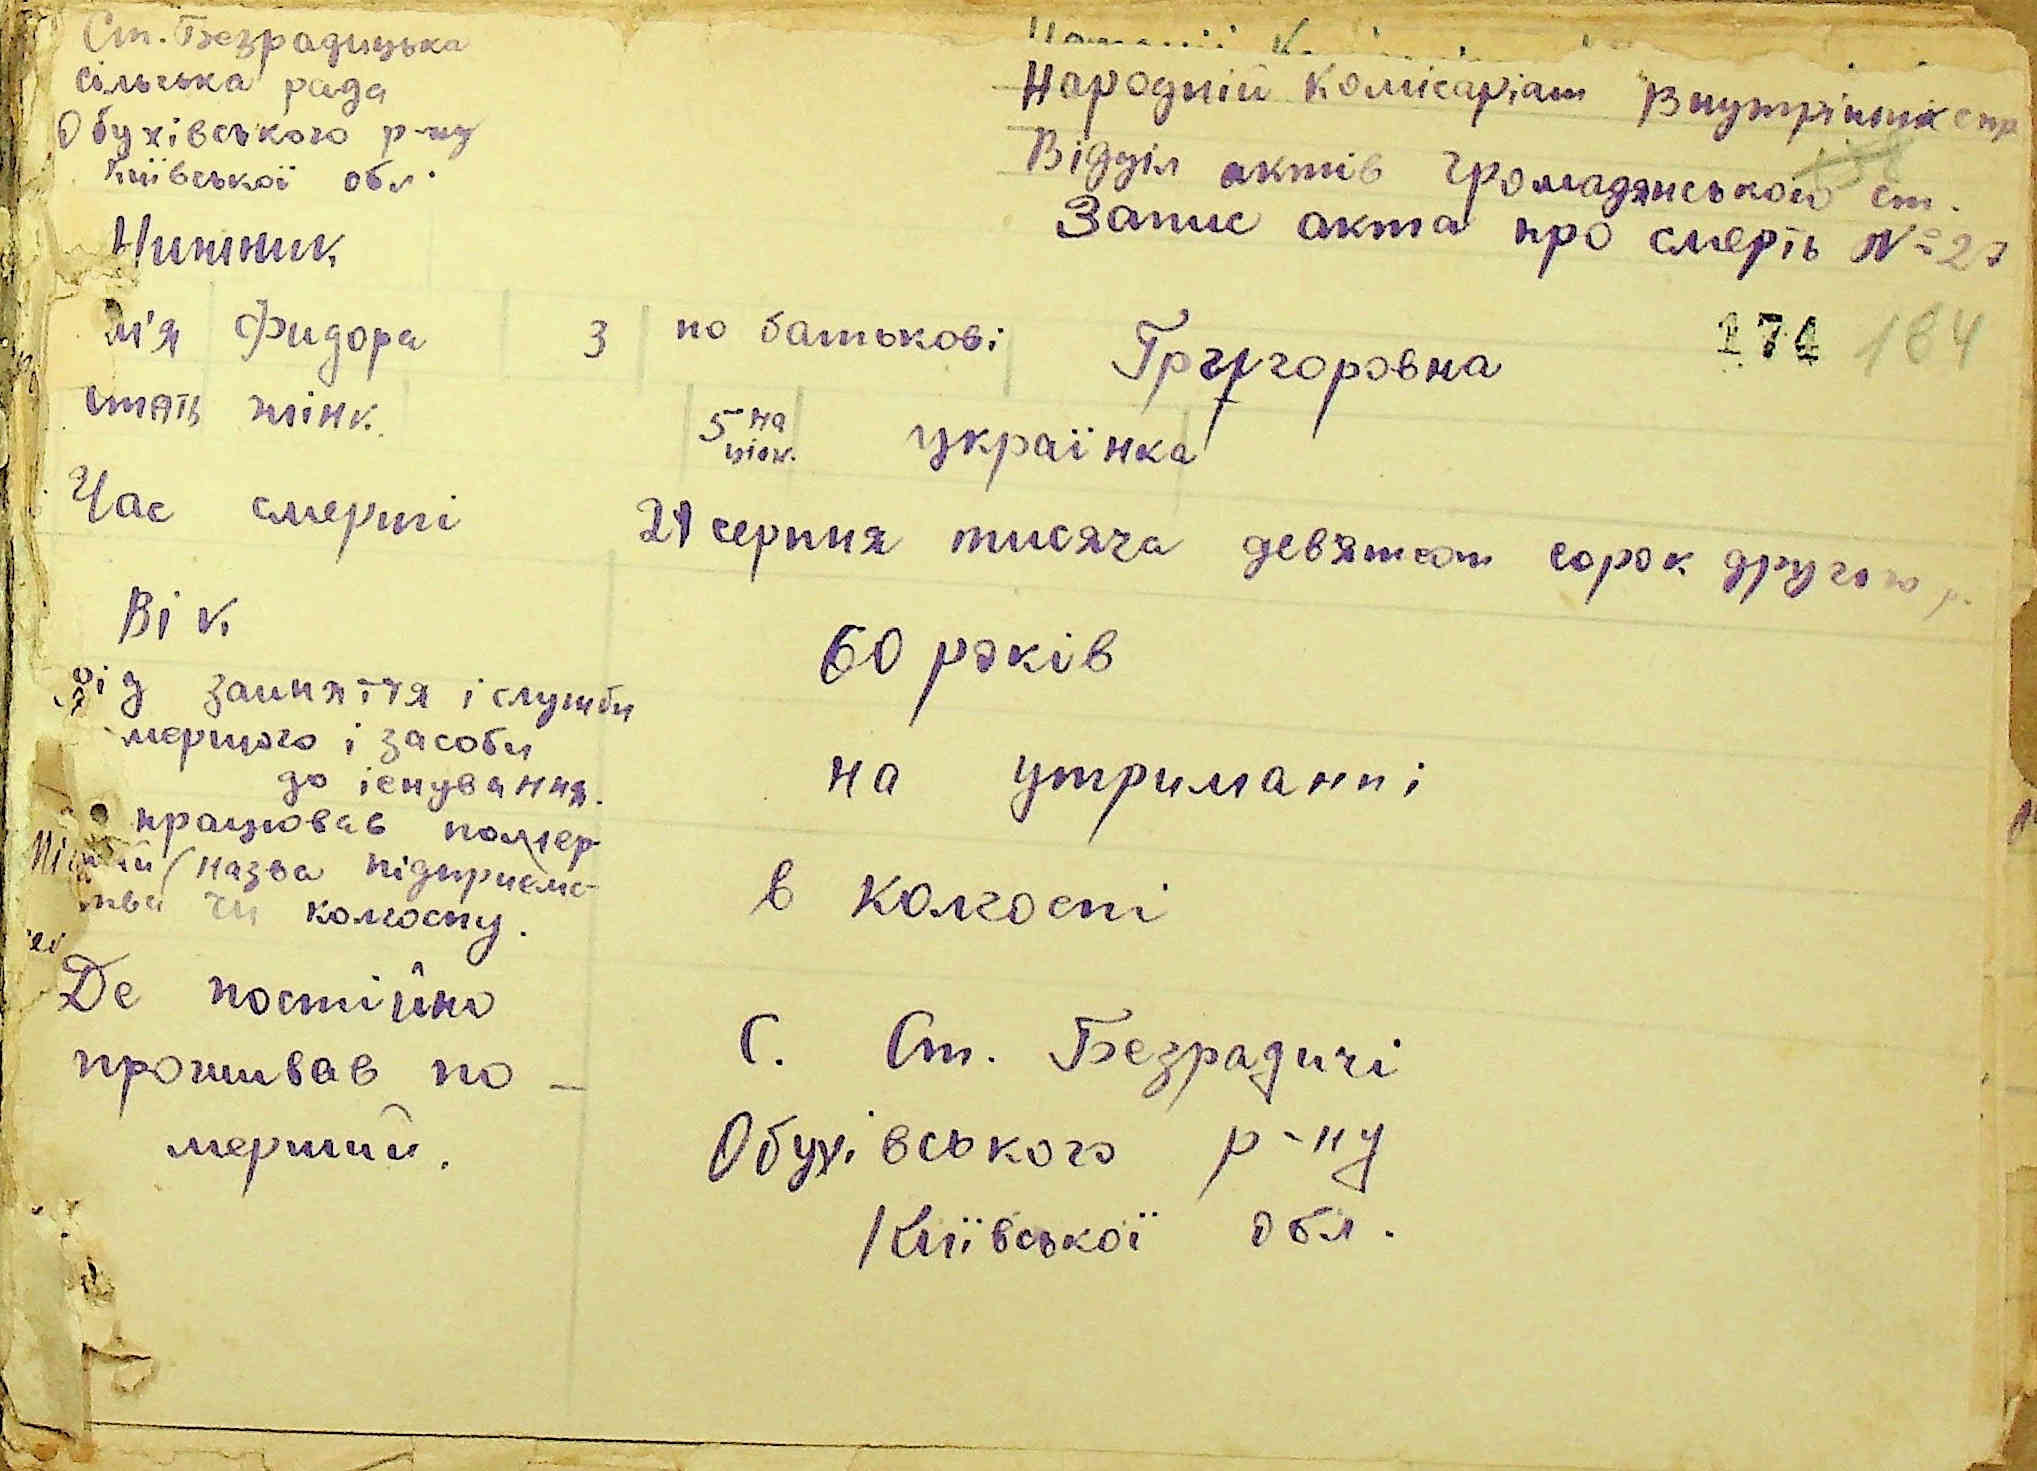 Ст. Безрадицька
сільська рада
Обухівського р-ну
Київської обл.
Народній Комісаріат Внутрішніх спр
Відділ актів громадянського ст.
Запис акта про смерть № 27
ім'я Фидора 3 по батькові Григоровна
174 184
стать жінк. 5 націон. українка
Час смерті 21 серпня тисяча девятсот сорок другого р.
Вік 60 років
рід заиняття і служби
мершого і засоби
до існування. на утриманні
працював помер
ший (назва підприємс-
тва чи колгоспу. в колгоспі
Де постійно
проживав по-
мерший.
С. Ст. Безрадичі
Обухівського р-ну
Київської обл.